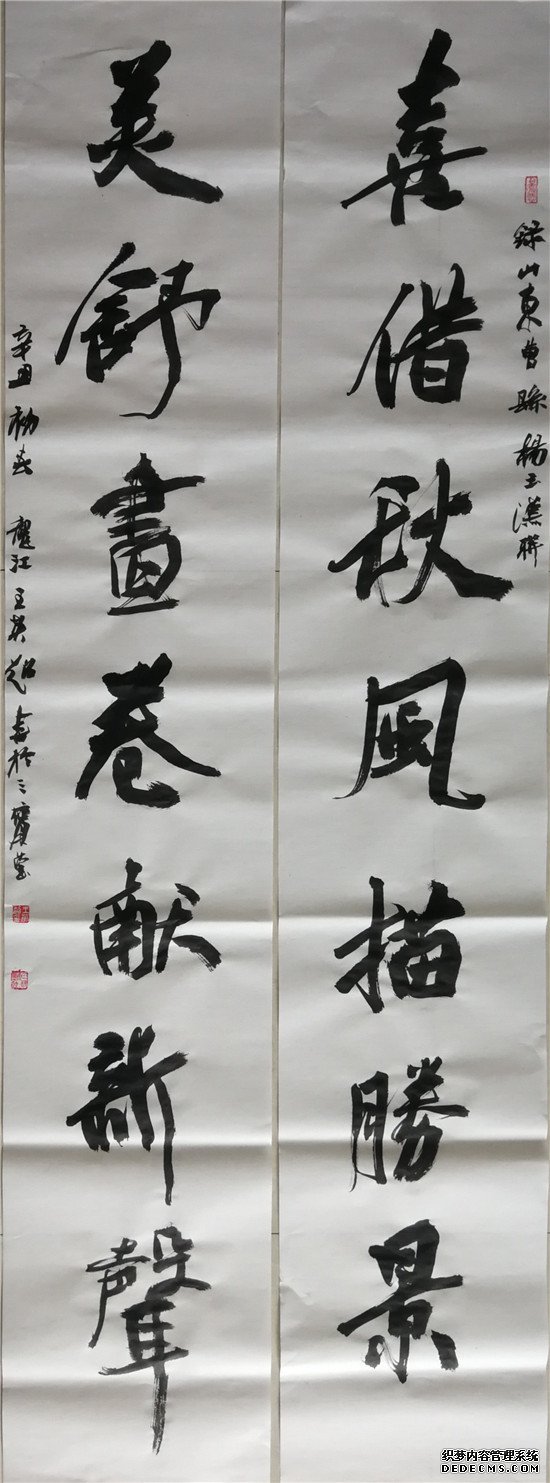 喜借秋風描勝景
録山東曹縣楊玉漢聯
美舒畫卷献新聲
辛丑初春 龍江王英超書於三寶堂
织梦内容管理系统
DEDECMS.COM